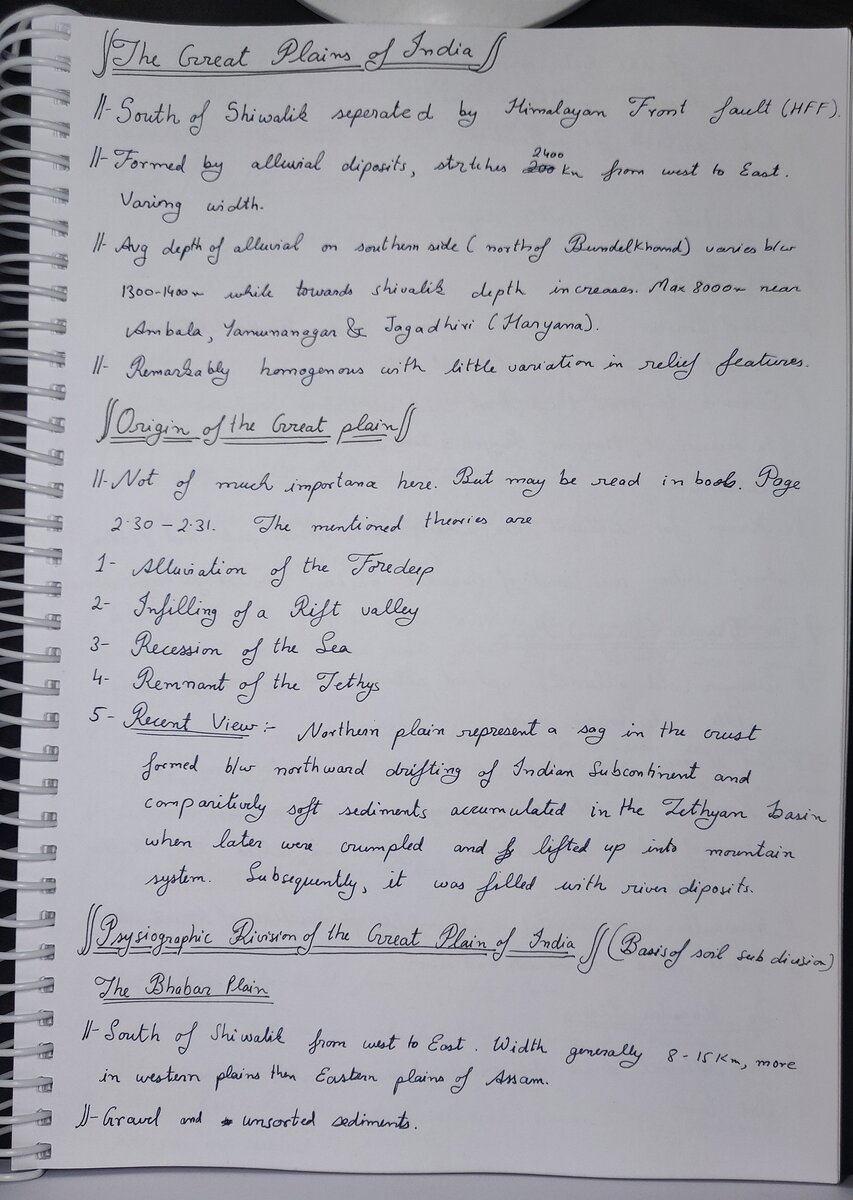 The Great Plains of India
South of Shiwalik seperated by Himalayan Front fault (HFF).
Formed by alluvial diposits, stretches 2400 km from west to East.
Varing width.
Avg depth of alluvial on southern side (north of Bundelkhand) varies b/w
1300-1400m while towards shivalik depth increases. Max 8000m near
Ambala, Yamunanagar & Jagadhiri (Haryana).
Remarkably homogenous with little variation in relief features.
Origin of the Great plain
Not of much importance here. But may be read in book. Page
2.30 - 2.31. The mentioned theories are
1- Alluviation of the Foredeep
2- Infilling of a Rift valley
3- Recession of the Sea
4- Remnant of the Tethys
5- Recent View:- Northern plain represent a sag in the crust
formed b/w northward drifting of Indian Subcontinent and
comparitively soft sediments accumulated in the Tethyan basin
when later were crumpled and lifted up into mountain
system. Subsequently, it was filled with river diposits.
Psysiographic Division of the Great Plain of India (Basis of soil sub division)
The Bhabar Plain
South of Shiwalik from west to East. Width generally 8-15 Km, more
in western plains then Eastern plains of Assam.
Gravel and unsorted sediments.